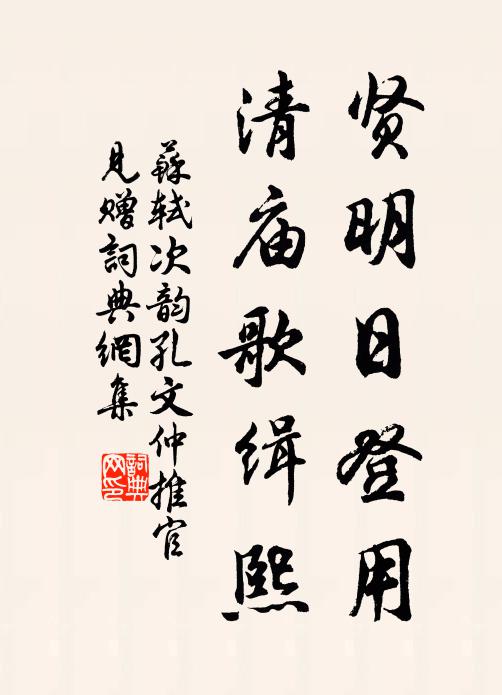 贤明日登用
清庙歌缉熙
蘇軾次韵孔文仲推官
見赠詞典網集
詞典网印